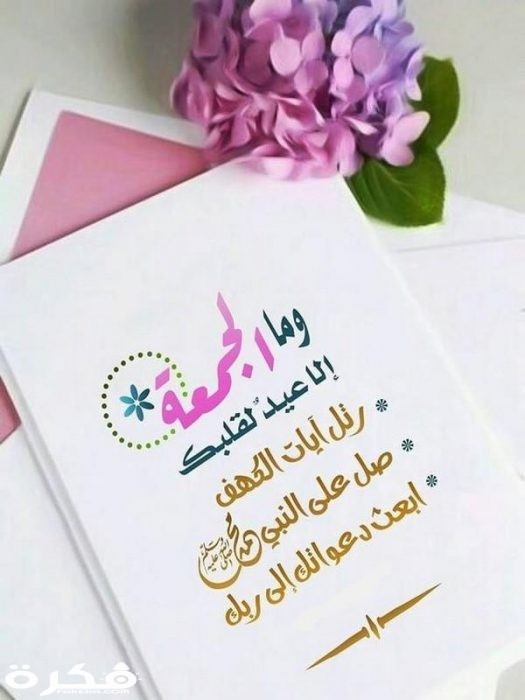 وما الجمعة
إلا عيدٌ لقلبك
* رتل آيات الكهف
* صل على النبي محمد صلى الله عليه وسلم
* ابعث دعواتك إلى ربك
فكرة